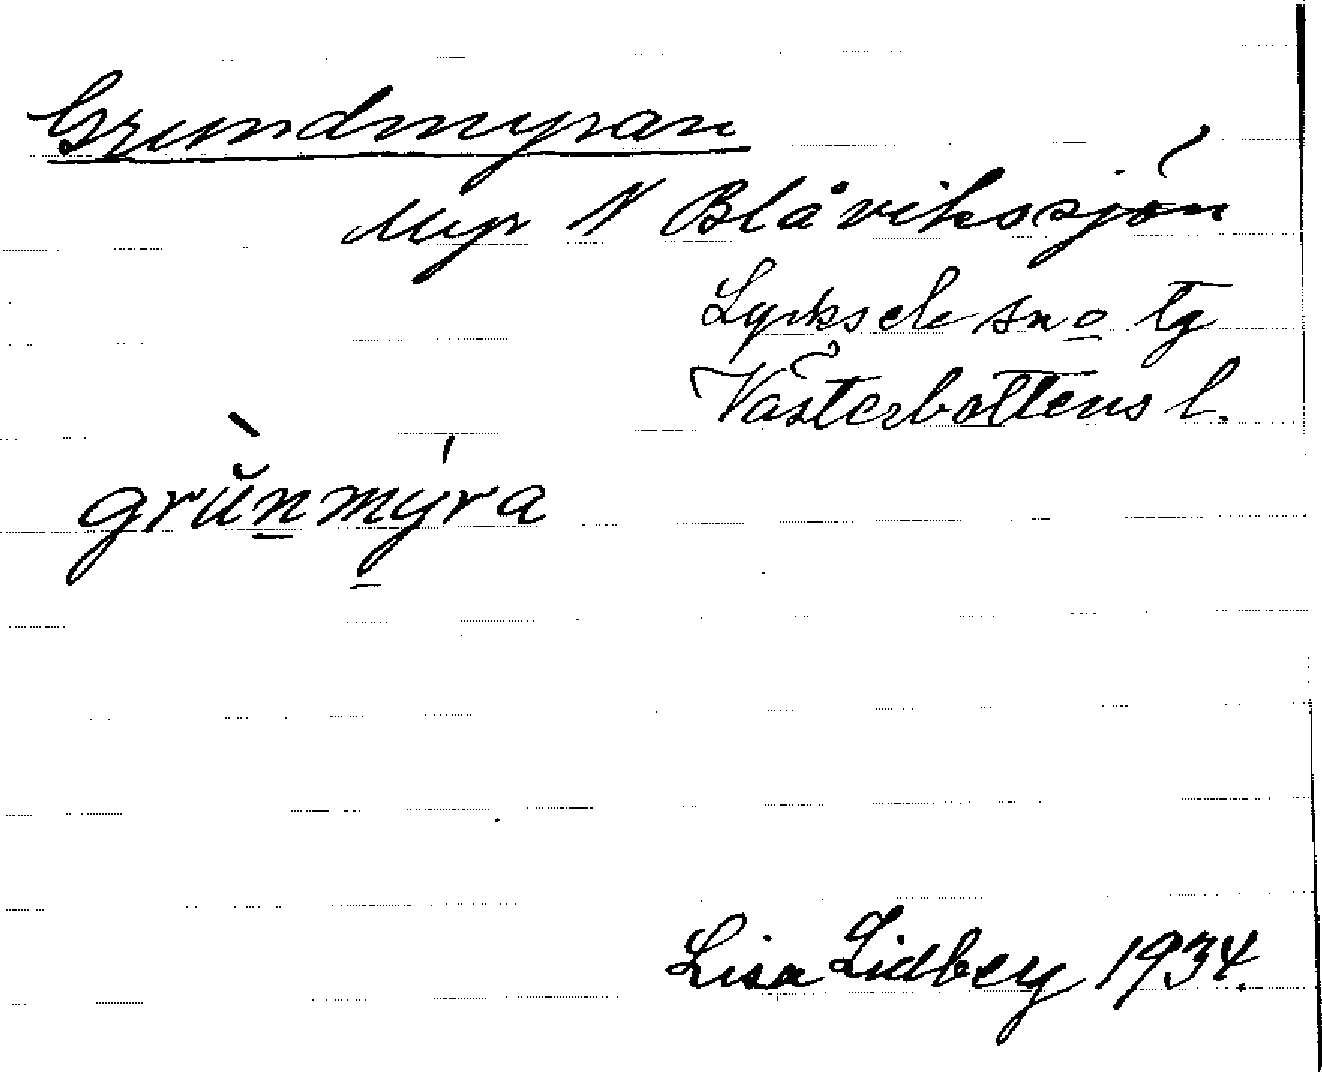 Grundmyran
Myr N Blåvikssjön
Lycksele sn o tg
Västerbottens l.
grŭnmýra
Lisa Lidberg 1934.